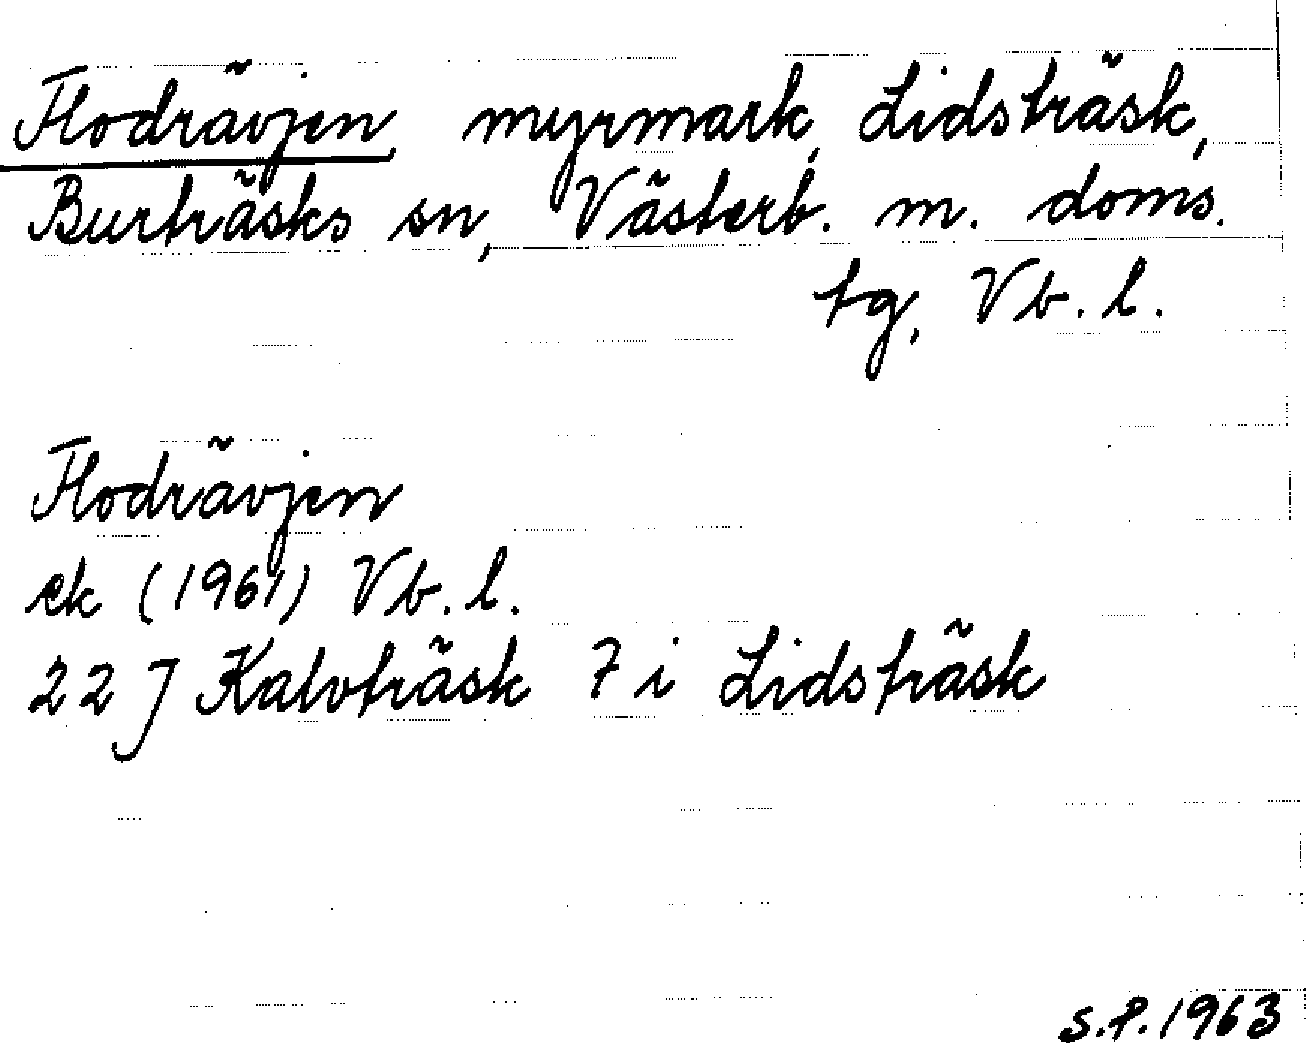 Flodrävjen, myrmark, Lidsträsk,
Burträsks sn, Västerb. m. doms.
tg, Vb. l.
Flodrävjen
ek (1961) Vb. l.
22 J Kalvträsk 7 i Lidsträsk
S.P. 1963